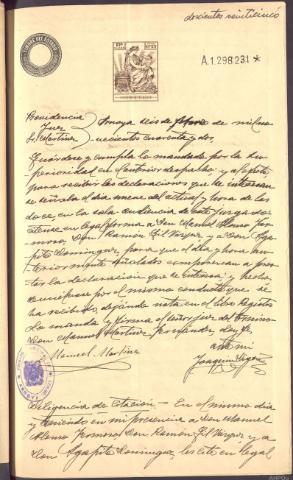 doscientos veinticinco
A1.298.231 *
Providencia
Juez
Sr Martinez
Amoya seis de
de mil no-
vecientos cuarenta y dos.
Guárdese y cumpla lo mandado por la Su-
perioridad en el anterior despacho y al efecto
para recibir las declaraciones que le interesan
se señala el día once del actual y hora de las
doce, en la sala audiencia de este Juzgado
citense en legal forma a Don Manuel Alonso
Don Ramón Gil y a Don Aga-
pito Dominguez, para que el día y hora an-
teriormente señalados comparezcan a pres-
tar la declaración que se interesa y hecho
devuélvase por el mismo conducto que se
ha recibido, dejando nota en el libro registro
Lo manda y firma el señor Juez
Don Manuel Martinez Fernandez, doy fe.
ante mí
Manuel Martinez
Joaquin
Diligencia de citación - En el mismo día
y teniendo en mi presencia a Don Manuel
Alonso Don Ramón Gil y a
Don Agapito Dominguez, les cité en legal